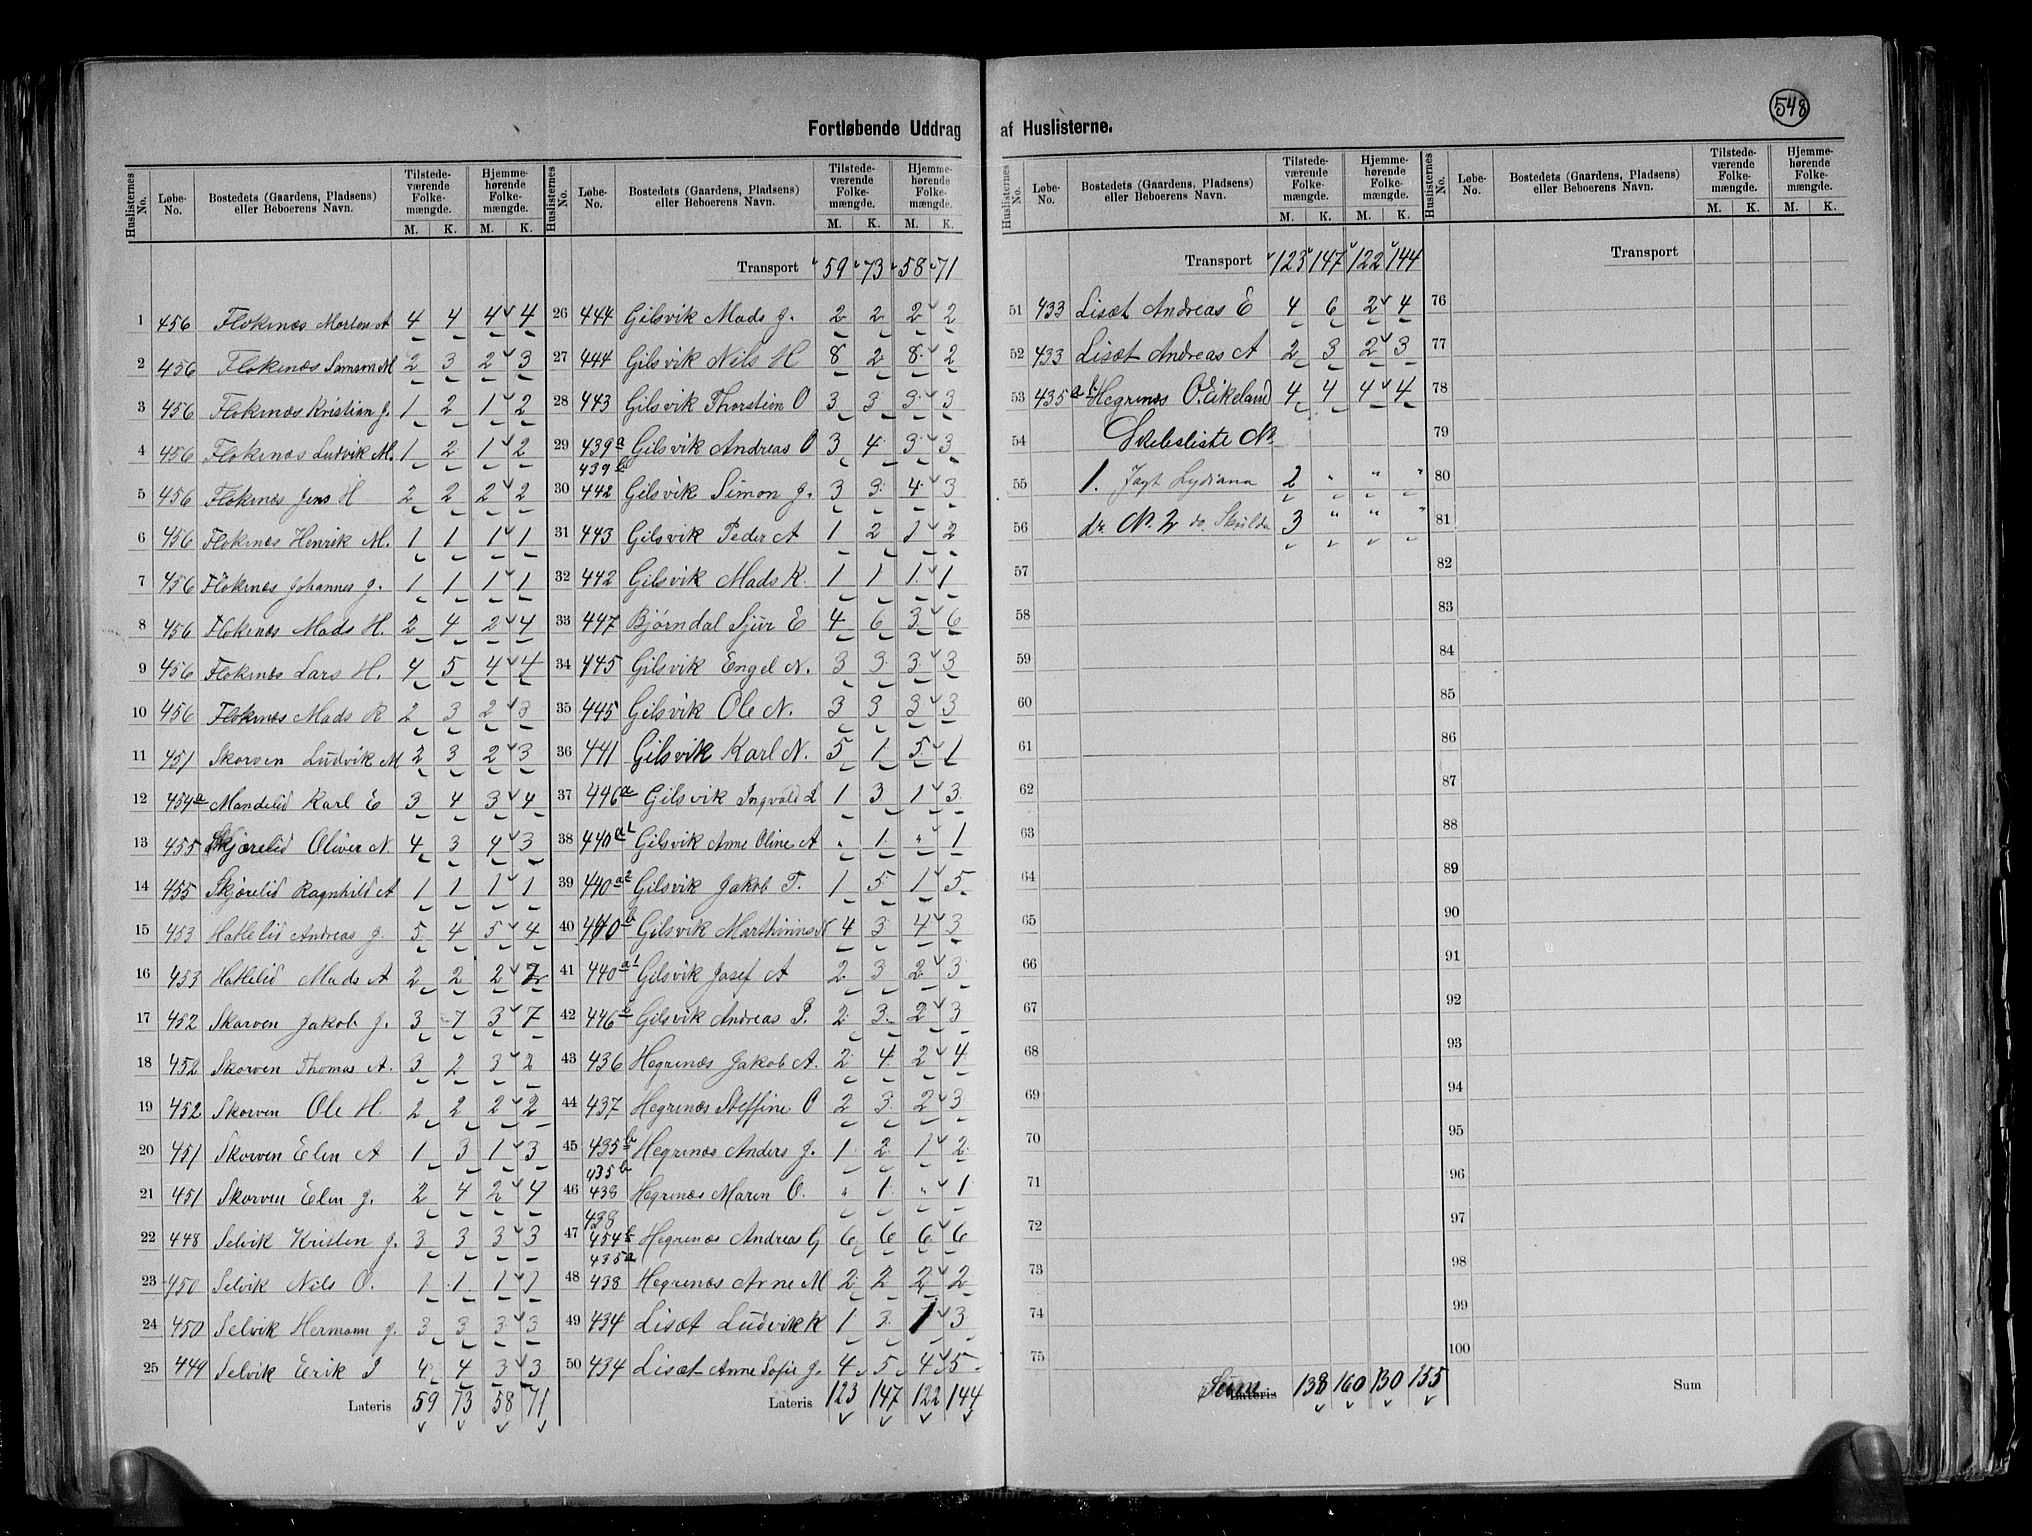 548
Fortløbende Uddrag af Huslisterne.
Huslisternes No. Løbe-No. Bostedets (Gaardens, Pladsens) eller Beboerens Navn. Tilstedeværende Folkemængde. M. K. Hjemmehørende Folkemængde. M. K.
1 456 Flokenæs Morten A 4 4 4 4
2 456 Flokenæs Samson M 2 3 2 3
3 456 Flokenæs Kristian J. 1 2 1 2
4 456 Flokenæs Ludvik M. 1 2 1 2
5 456 Flokenæs Jens H 2 2 2 2
6 456 Flokenæs Henrik M. 1 1 1 1
7 456 Flokenæs Johannes J. 1 1 1 1
8 456 Flokenæs Mads H. 2 4 2 4
9 456 Flokenæs Lars H. 4 5 4 4
10 456 Flokenæs Mads R 2 3 2 3
11 451 Skorven Ludvik M 2 3 2 3
12 454a Mandelid Karl E 3 4 3 4
13 455 Skjærelid Oliver N 4 3 4 3
14 455 Skjærelid Ragnhild A 1 1 1 1
15 453 Hatlelid Andreas J. 5 4 5 4
16 453 Hatlelid Mads A 2 2 2 2
17 452 Skorven Jakob J. 3 7 3 7
18 452 Skorven Thomas A. 3 2 3 2
19 452 Skorven Ole H. 2 2 2 2
20 451 Skorven Elen A 1 3 1 3
21 451 Skorven Elen J. 2 4 2 4
22 448 Selvik Kristen J. 3 3 3 3
23 450 Selvik Nils O. 1 1 1 1
24 450 Selvik Hermann J. 3 3 3 3
25 449 Selvik Erik P 4 4 3 3
Lateris 59 73 58 71
Huslisternes No. Løbe-No. Bostedets (Gaardens, Pladsens) eller Beboerens Navn. Tilstedeværende Folkemængde. M. K. Hjemmehørende Folkemængde. M. K.
Transport 59 73 58 71
26 444 Gilsvik Mads J. 2 2 2 2
27 444 Gilsvik Nils H 8 2 8 2
28 443 Gilsvik Thorstien O 3 3 3 3
29 439a Gilsvik Andreas O 3 4 3 3
439b
30 442 Gilsvik Simon J. 3 3 4 3
31 443 Gilsvik Peder A 1 2 1 2
32 442 Gilsvik Mads K. 1 1 1 1
33 447 Bjørndal Sjur E 4 6 3 6
34 445 Gilsvik Engel N. 3 3 3 3
35 445 Gilsvik Ole N. 3 3 3 3
36 441 Gilsvik Karl N. 5 1 5 1
37 446a Gilsvik Ingvald L 1 3 1 3
38 440a1 Gilsvik Anne Oline A " 1 " 1
39 440a2 Gilsvik Jakob T. 1 5 1 5
40 440b Gilsvik Marthinus N 4 3 4 3
41 440a1 Gilsvik Josef A 2 3 2 3
42 446b Gilsvik Andreas P. 2 3 2 3
43 436 Hegrenæs Jakob A. 2 4 2 4
44 437 Hegrenæs Steffine O 2 3 2 3
45 435b Hegrenæs Anders J. 1 2 1 2
435b
46 438 Hegrenæs Maren O. " 1 " 1
438
47 454b Hegrenæs Andreas G 6 6 6 6
435a
48 438 Hegrenæs Arne M 2 2 2 2
49 434 Lisæt Ludvik K 1 3 1 3
50 434 Lisæt Anne Sofie J. 4 5 4 5
Lateris 123 147 122 144
Huslisternes No. Løbe-No. Bostedets (Gaardens, Pladsens) eller Beboerens Navn. Tilstedeværende Folkemængde. M. K. Hjemmehørende Folkemængde. M. K.
Transport 123 147 122 144
51 433 Lisæt Andreas E 4 6 2 4
52 433 Lisæt Andreas A 2 3 2 3
53 435a Hegrenæs O. Eikeland 4 4 4 4
54 Skibsliste No
55 1. Jagt Lydiana 2 " " "
56 do. No. 2 do. 3 " " "
57
58
59
60
61
62
63
64
65
66
67
68
69
70
71
72
73
74
75
Sum Lateris 138 160 130 155
Huslisternes No. Løbe-No. Bostedets (Gaardens, Pladsens) eller Beboerens Navn. Tilstedeværende Folkemængde. M. K. Hjemmehørende Folkemængde. M. K.
Transport
76
77
78
79
80
81
82
83
84
85
86
87
88
89
90
91
92
93
94
95
96
97
98
99
100
Sum